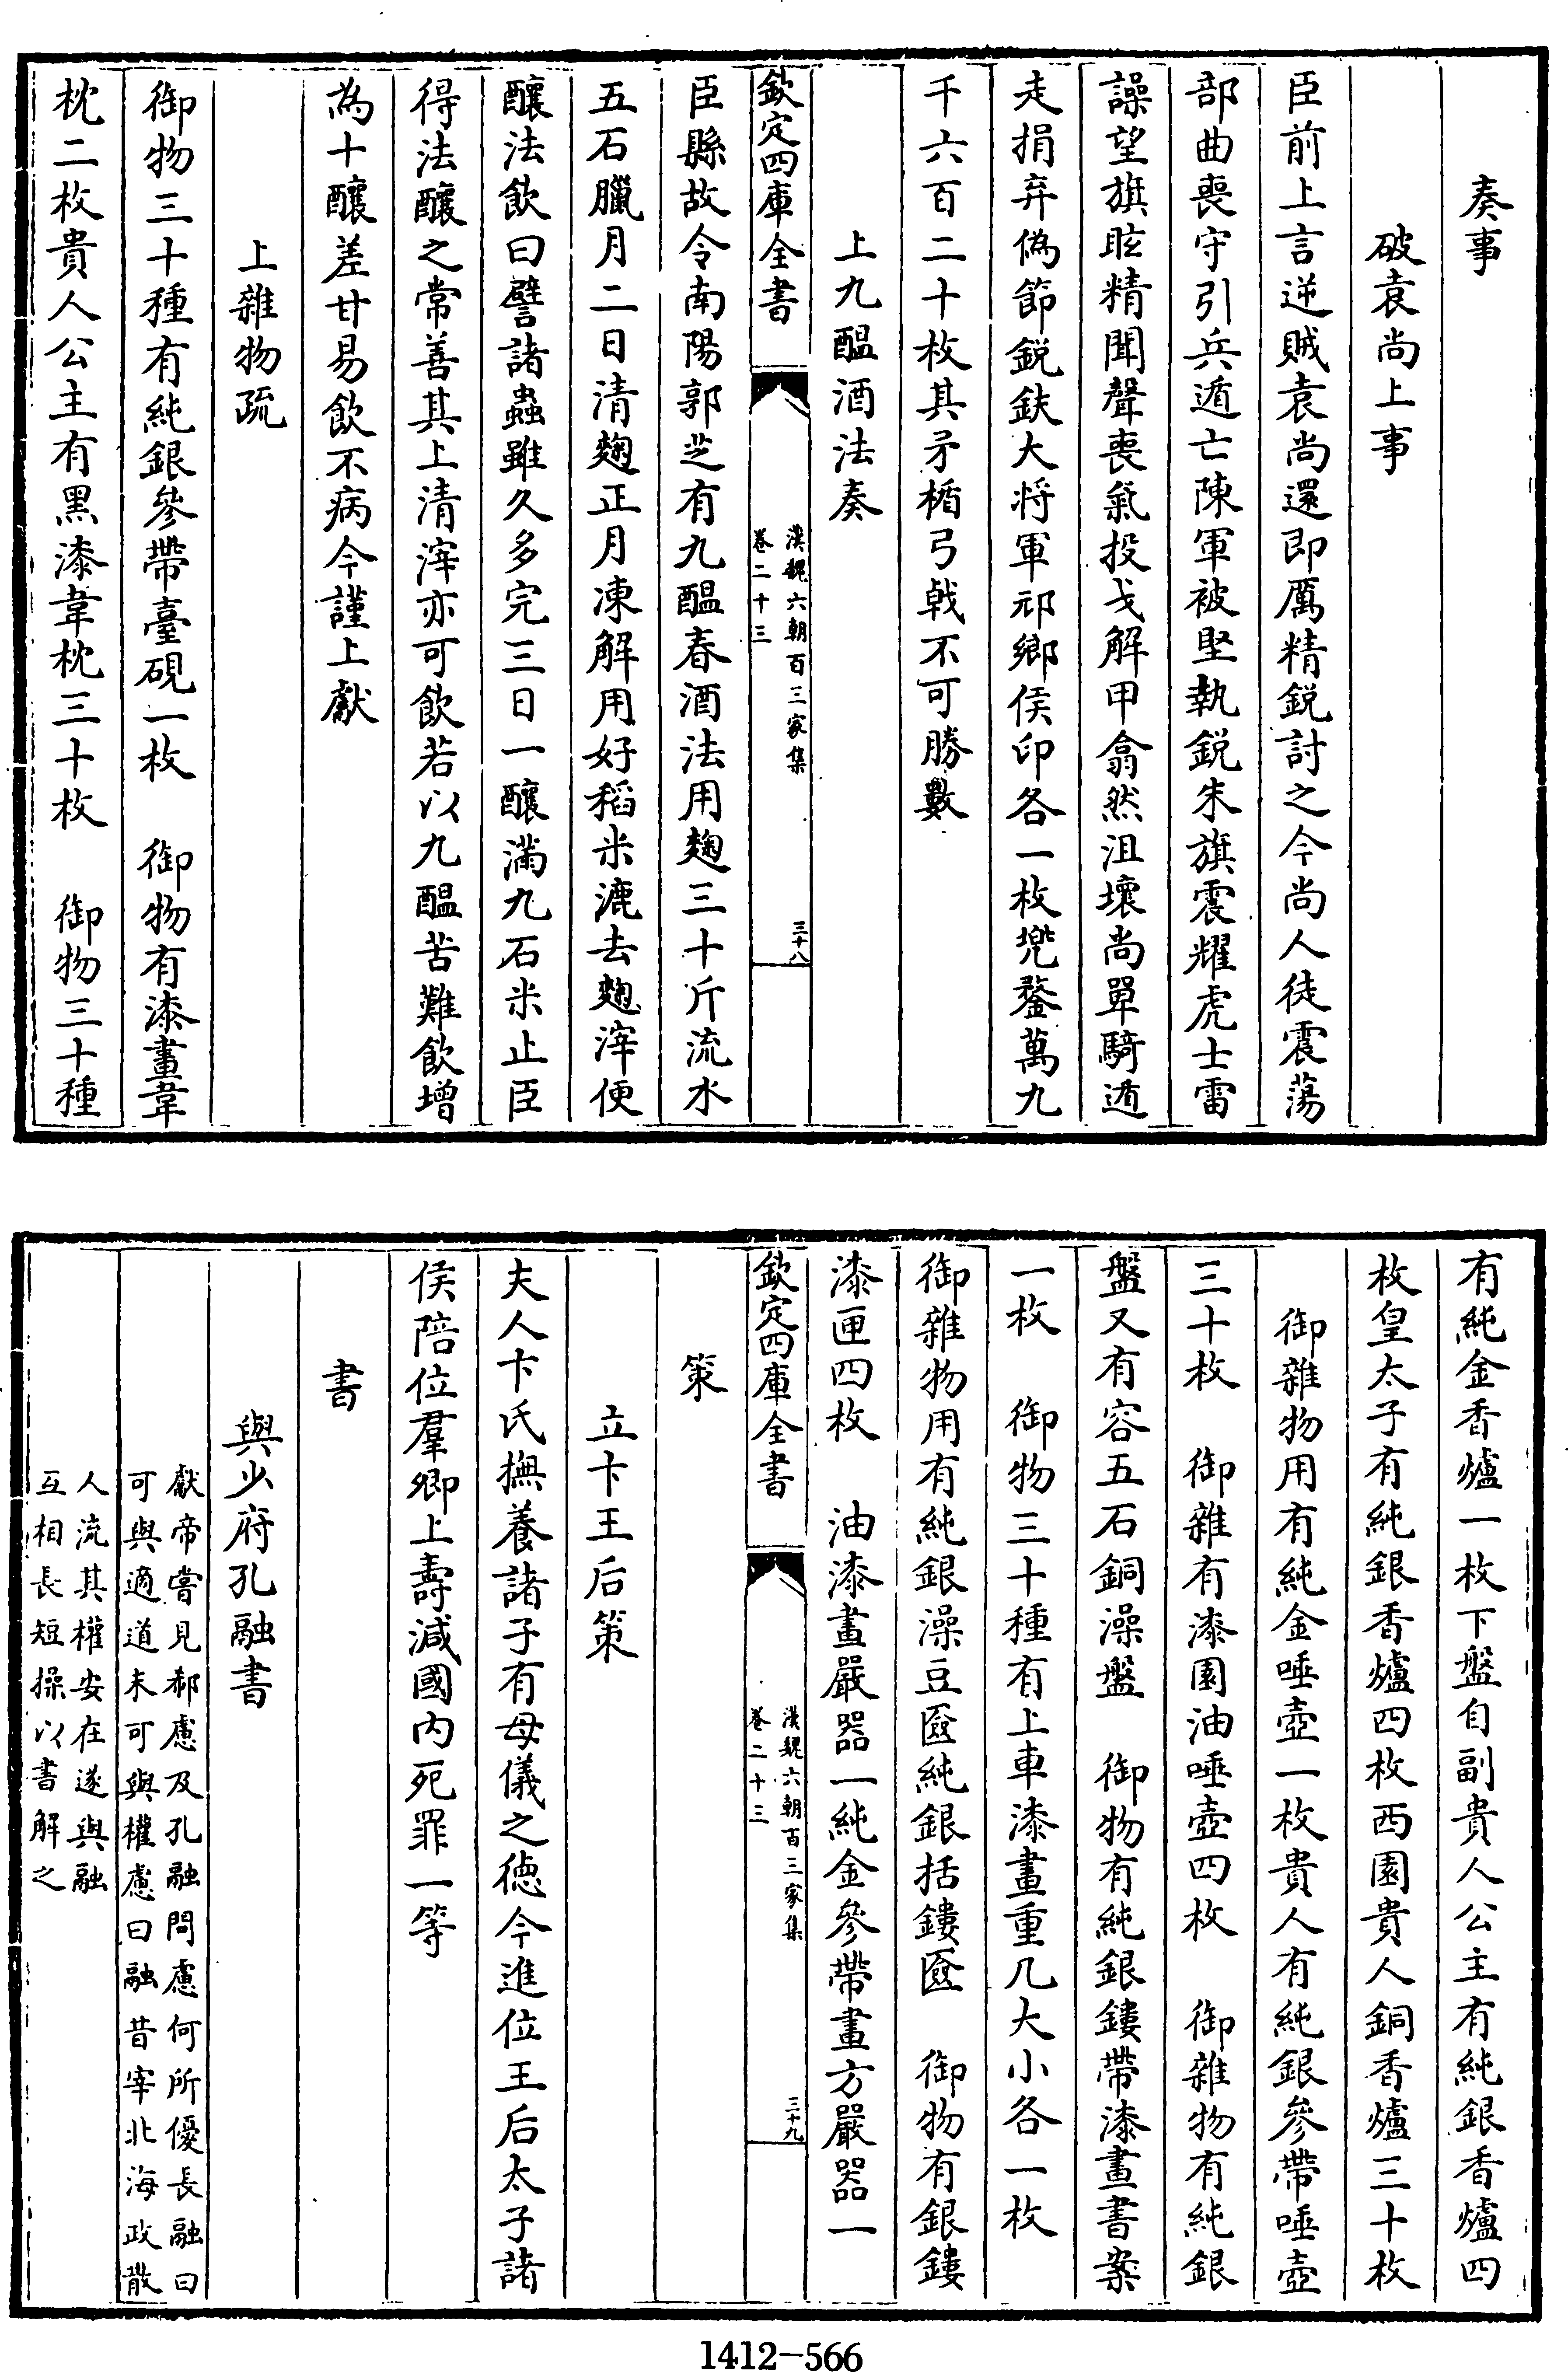 奏事
破袁尚上事
臣前上言逆賊袁尚還即厲精鋭討之今尚人徒震蕩
部曲喪守引兵遁亡陳軍被堅執鋭朱旗震耀虎士雷
譟望旗眩精聞聲喪氣投戈解甲翕然沮壞尚單騎遁
走捐弃偽節鋭鈇大将軍邟鄉侯印各一枚兜鍪萬九
千六百二十枚其矛楯弓戟不可勝數
上九醖酒法奏
欽定四庫全書
漢魏六朝百三家集
卷二十三
三十八
臣縣故令南陽郭芝有九醖春酒法用麴三十斤流水
五石臘月二日清麴正月凍解用好稻米漉去麴滓便
釀法飲曰譬諸蟲雖久多完三日一釀滿九石米止臣
得法釀之常善其上清滓亦可飲若以九醖苦難飲增
為十釀差甘易飲不病今謹上獻
上雜物疏
御物三十種有純銀參帶臺硯一枚　御物有漆畫韋
枕二枚貴人公主有黑漆韋枕三十枚　御物三十種
有純金香爐一枚下盤自副貴人公主有純銀香爐四
枚皇太子有純銀香爐四枚西園貴人銅香爐三十枚
御雜物用有純金唾壺一枚貴人有純銀參帶唾壺
三十枚　御雜有漆園油唾壺四枚　御雜物有純銀
盤又有容五石銅澡盤　御物有純銀鏤帶漆畫書案
一枚　御物三十種有上車漆畫重几大小各一枚
御雜物用有純銀澡豆匳純銀括鏤匳　御物有銀鏤
漆匣四枚　油漆畫嚴器一純金參帶畫方嚴器一
欽定四庫全書
漢魏六朝百三家集
卷二十三
三十九
策
立卞王后策
夫人卞氏撫養諸子有母儀之德今進位王后太子諸
侯陪位羣卿上壽減國内死罪一等
書
與少府孔融書
獻帝嘗見郗慮及孔融問慮何所優長融曰
可與適道未可與權慮曰融昔宰北海政散
人流其權安在遂與融
互相長短操以書解之
1412—566